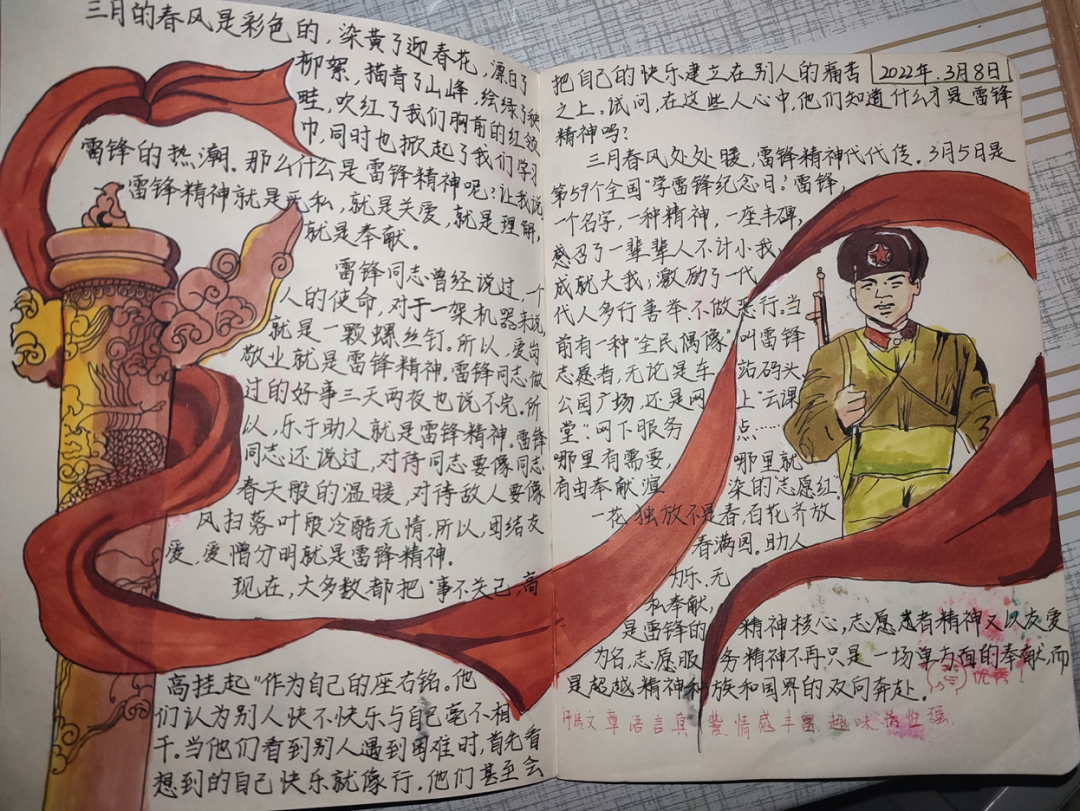 三月的春风是彩色的，染黄了迎春花，漂白了
柳絮，描青了山峰，绘绿了秧
畦，吹红了我们胸前的红领
巾，同时也掀起了我们学习
雷锋的热潮。那么什么是雷锋精神呢？让我说
雷锋精神就是无私，就是关爱，就是理解，
就是奉献。
雷锋同志曾经说过，一个
人的使命，对于一架机器来说
就是一颗螺丝钉。所以，爱岗
敬业就是雷锋精神。雷锋同志做
过的好事三天两夜也说不完。所
以，乐于助人就是雷锋精神。雷锋
同志还说过，对待同志要像同志
春天般的温暖，对待敌人要像
风扫落叶般冷酷无情，所以，团结友
爱，爱憎分明就是雷锋精神。
现在，大多数都把“事不关己，高
高挂起”作为自己的座右铭。他
们认为别人快不快乐与自己毫不相
干。当他们看到别人遇到困难时，首先看
想到的自己快乐就像行。他们甚至会
把自己的快乐建立在别人的痛苦
2022年.3月8日
之上。试问，在这些人心中，他们知道什么才是雷锋
精神吗？
三月春风处处暖，雷锋精神代代传。3月5日是
第59个全国“学雷锋纪念日”。雷锋，
一个名字，一种精神，一座丰碑，
感召了一辈辈人不计小我，
成就大我；激励了一代
代人多行善举，不做恶行。当
前有一种“全民偶像”叫雷锋
志愿者，无论是车站码头
公园广场，还是网上“云课
堂”：网下服务点……
哪里有需要，哪里就
有由奉献渲染的“志愿红”。
一花独放不是春，百花齐放
春满园。助人
为乐、无
私奉献，
是雷锋的精神核心，志愿者精神又以友爱
为名，志愿服务精神不再只是一场单方面的奉献，而
是超越精神种族和国界的双向奔赴。
优秀！
文章语言真挚，情感丰富，趣味性强。